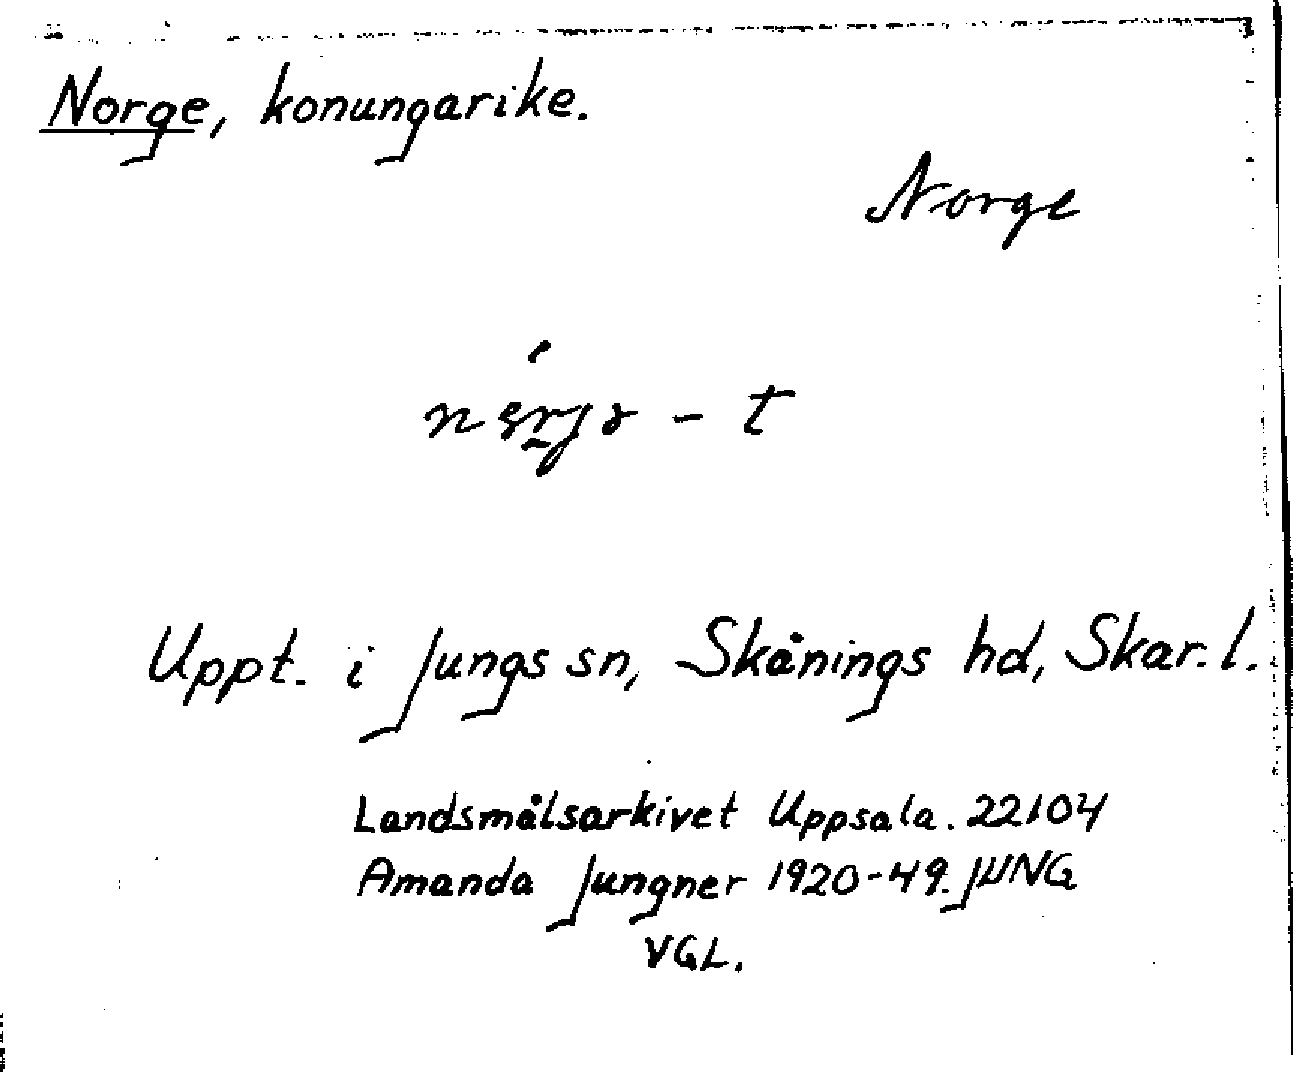 Norge, konungarike.
Norge
- t
Uppt. i Jungs sn, Skånings hd, Skar. l.
Landsmålsarkivet Uppsala. 22104
Amanda Jungner 1920-49. JUNG
VGL.